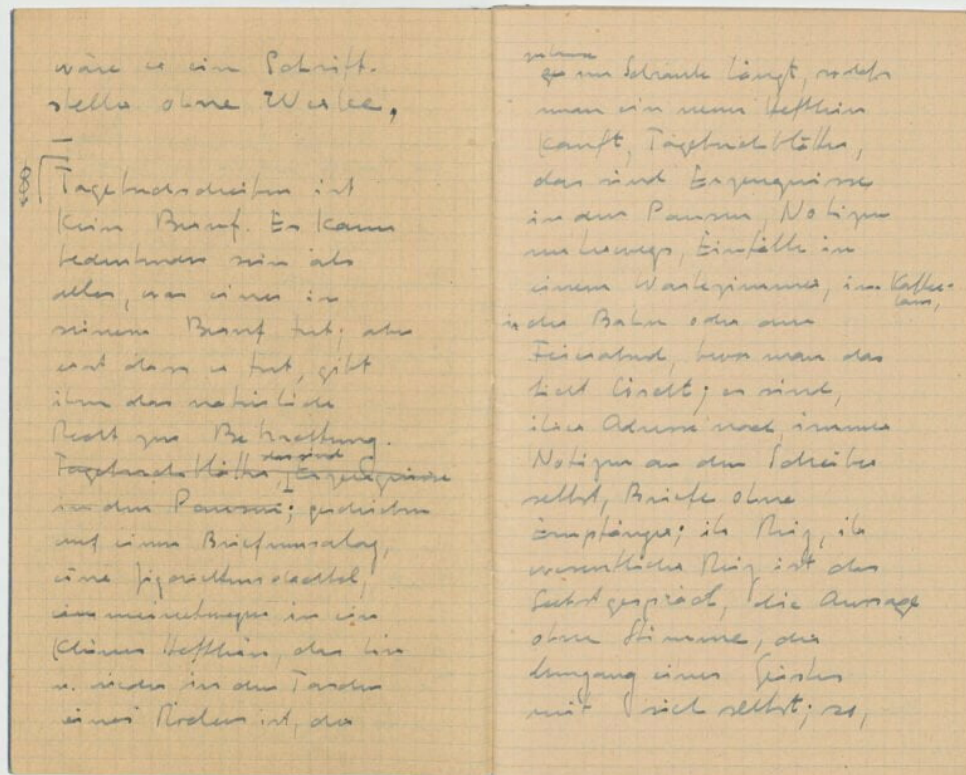 wäre es ein Schrift-
steller ohne Werke,
Tagebuchschreiben ist
kein Beruf. Es kann
bedeutender sein als
alles, was einer in
seinem Beruf tut; aber
erst dass er tut, gibt
ihm das natürliche
Recht zur Betrachtung.
Tagebuchblätter, das sind Erzeugnisse
in den Pausen; geschrieben
auf einen Briefumschlag,
eine Zigarettenschachtel,
meinetwegen in ein
kleines Heftlein, das hin
u. wieder in den Taschen
eines Rockes ist, der
zuhause
im Schranke hängt, sodass
man ein neues Heftlein
kauft, Tagebuchblätter,
das sind Erzeugnisse
in den Pausen, Notizen
unterwegs, Einfälle in
einem Wartezimmer, im Kaffee-
in der Bahn oder am
Feierabend, bevor man das
Licht löscht; es sind,
ihrer Adresse nach, immer
Notizen an den Schreiber
selbst, Briefe ohne
Empfänger; ihr Reiz, ihr
wesentlicher Reiz ist das
Selbstgespräch, die Aussage
ohne Stimme, der
Umgang eines Geistes
mit sich selbst; so,